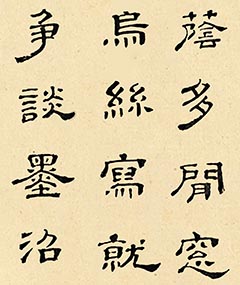 蔭多閒窓
烏絲寫就
爭談墨沼